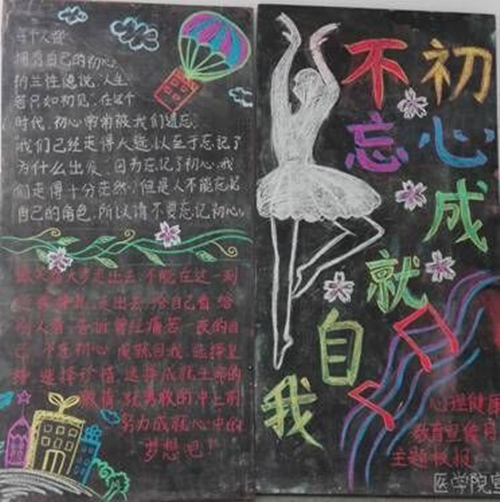 每个人都
拥有自己的初心,
纳兰性德说,人生
若只如初见,在这个
时代,初心常常被我们遗忘,
我们已经走得太远,以至于忘记了
为什么出发,因为忘记了初心,我
们走得十分茫然,但是人不能忘记
自己的角色,所以请不要忘记初心。
大步走出去,不能在这一刻
走出去,给自己看,给
别人看,告诉曾经痛苦一度的自
己,不忘初心,成就自我,选择坚
持,选择珍惜,选择成就生命的
激情,就勇敢的冲上前
努力成就心中的
梦想吧!
不忘
初心
成就
自我
心理健康
教育宣传月
主题板报
医学院宣